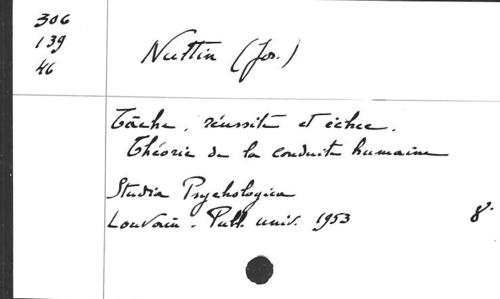 306
139
46
Nuttin (Jos.)
Tâche, réussite et échec.
Théorie de la conduite humaine
Studia Psychologica
Louvain. Publ. univ. 1953 8°